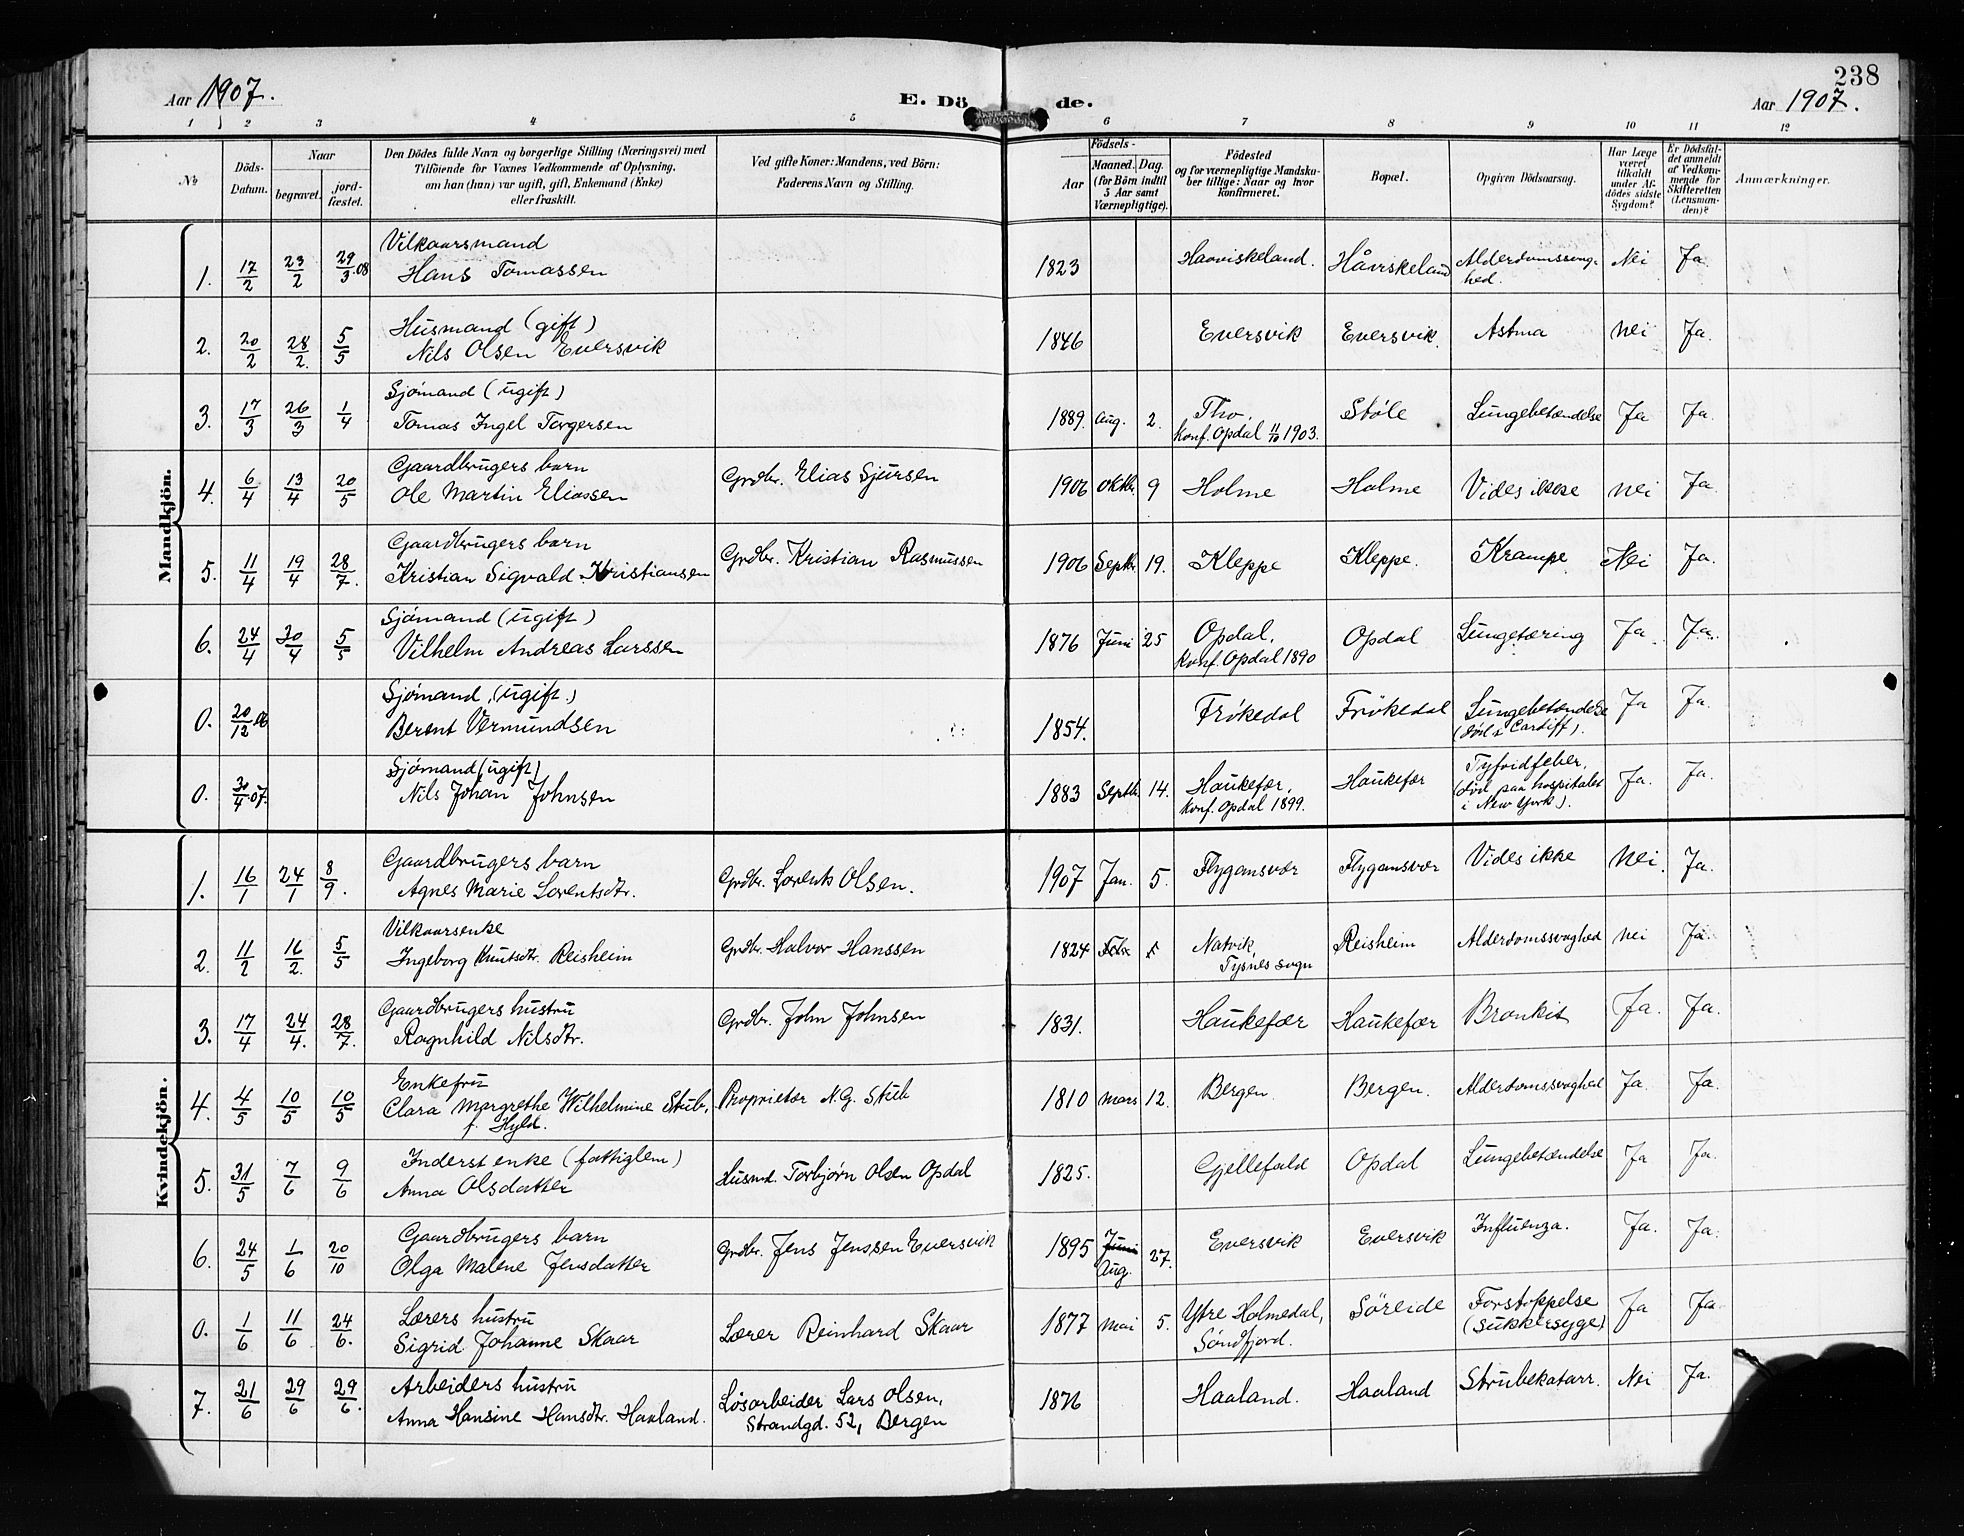 238
Aar 1907.
E. Dö de.
Aar 1907.
1 2 3 4 5 6 7 8 9 10 11 12
№
Döds-
Datum.
Naar
begravet.
jord-
fæstet.
Den Dödes fulde Navn og borgerlige Stilling (Næringsvei) med
Tilföiende for Voxnes Vedkommende af Oplysning,
om han (hun) var ugift, gift, Enkemand (Enke)
eller fraskilt.
Ved gifte Koner: Mandens, ved Börn:
Faderens Navn og Stilling.
Födsels-
Aar
Maaned. Dag.
(for Börn indtil
5 Aar samt
Værnepligtige).
Födested
og for værnepligtige Mandska-
ber tillige: Naar og hvor
konfirmeret.
Bopæl.
Opgiven Dödsaarsag.
Har Læge
været
tilkaldt
under Af-
dödes sidste
Sygdom?
Er Dödsfal-
det anmeldt
af Vedkom-
mende for
Skifteretten
(Lensman-
den)?
Anmærkninger.
Mandkjön.
1. 17/2 23/2 29/3 08 Vilkaarsmand
Hans Tomassen 1823 Haaviskeland. Håviskeland Alderdomssvag-
hed. Nei Ja.
2. 20/2 28/2. 5/5 Husmand (gift)
Nils Olsen Eversvik 1846 Eversvik Eversvik. Astma nei Ja.
3. 17/3 26/3 1/4 Sjómand (ugift)
Tomas Ingel Torgersen 1889. Aug. 2. Tho.
Konf. Opdal 11/10 1903. Støle Lungebetændelse Ja Ja.
4. 6/4 13/4 20/5 Gaardbrugers barn
Ole Martin Eliassen Grdbr. Elias Sjursen 1906 Oktbr. 9 Holme Holme Vides ikke nei Ja.
5. 11/4 19/4 28/7. Gaardbrugers barn
Kristian Sigvald Kristiansen Grdbr. Kristian Rasmussen 1906 Septbr. 19. Kleppe Kleppe. Krampe Nei Ja.
6. 24/4 30/4 5/5 Sjómand (ugift)
Vilhelm Andreas Larssen 1876 Juni 25 Opdal.
Konf. Opdal 1890 Opdal Lungetæring Ja. Ja.
0. 20/12 06 Sjómand (ugift.)
Berent Vermundsen 1854. Frókedal Frökedal Lungebetændelse
(död i Cardiff). Ja Ja.
0. 30/4 07. Sjómand (ugift)
Nils Johan Johnsen 1883 Septb. 14. Haukefær.
Konf. Opdal 1899. Haukefær Tyfoidfeber.
(död paa hospitalet
i New York). Ja. Ja.
Kvindekjön.
1. 16/1 24/1 8/9. Gaardbrugers barn
Agnes Marie Lorentsdtr. Grdbr. Lorents Olsen. 1907 Jan. 5. Flygansvær Flygansvær Vides ikke nei. Ja.
2. 11/2 16/2. 5/5 Vilkaarsenke
Ingeborg Knutsdtr. Reisheim Grdbr. Halvor Hanssen 1824 Febr. Natvik
Tysnes sogn Reisheim Alderdomssvaghed nei Ja.
3. 17/4 24/4. 28/7. Gaardbrugers hustru
Ragnhild Nilsdtr. Grdbr. John Johnsen 1831. Haukefær Haukefær Bronkit Ja. Ja.
4. 4/5 10/5 10/5 Enkefru
Clara Margrethe Wilhelmine Stub,
f. Hyld. Proprietær N.G. Stub 1810 Mars 12. Bergen. Bergen. Alderdomssvaghed Ja. Ja.
5. 31/5 7/6 9/6 Inderst enke (fattiglem)
Anna Olsdatter Husmd. Torbjørn Olsen Opdal 1825. Gjellefald Opdal Lungebetændelse Ja Ja.
6. 24/5 1/6 20/10 Gaardbrugers barn
Olga Malene Jensdatter Grdbr. Jens Jenssen Eversvik 1895 Juni
Aug. 27. Eversvik Eversvik Influenza. Ja. Ja.
0. 1/6 11/6 24/6. Lærers hustru
Sigrid Johanne Skaar Lærer Reinhard Skaar 1877 Mai 5. Ytre Holmedal,
Söndfjord. Söreide Forstoppelse
(Sukkersyge) Ja Ja.
7. 21/6 29/6 29/6. Arbeiders hustru
Anna Hansine Hansdtr. Haaland. Lösarbeider Lars Olsen,
Strandgd. 52, Bergen 1876 Haaland. Haaland Strubekatarr. Nei Ja.